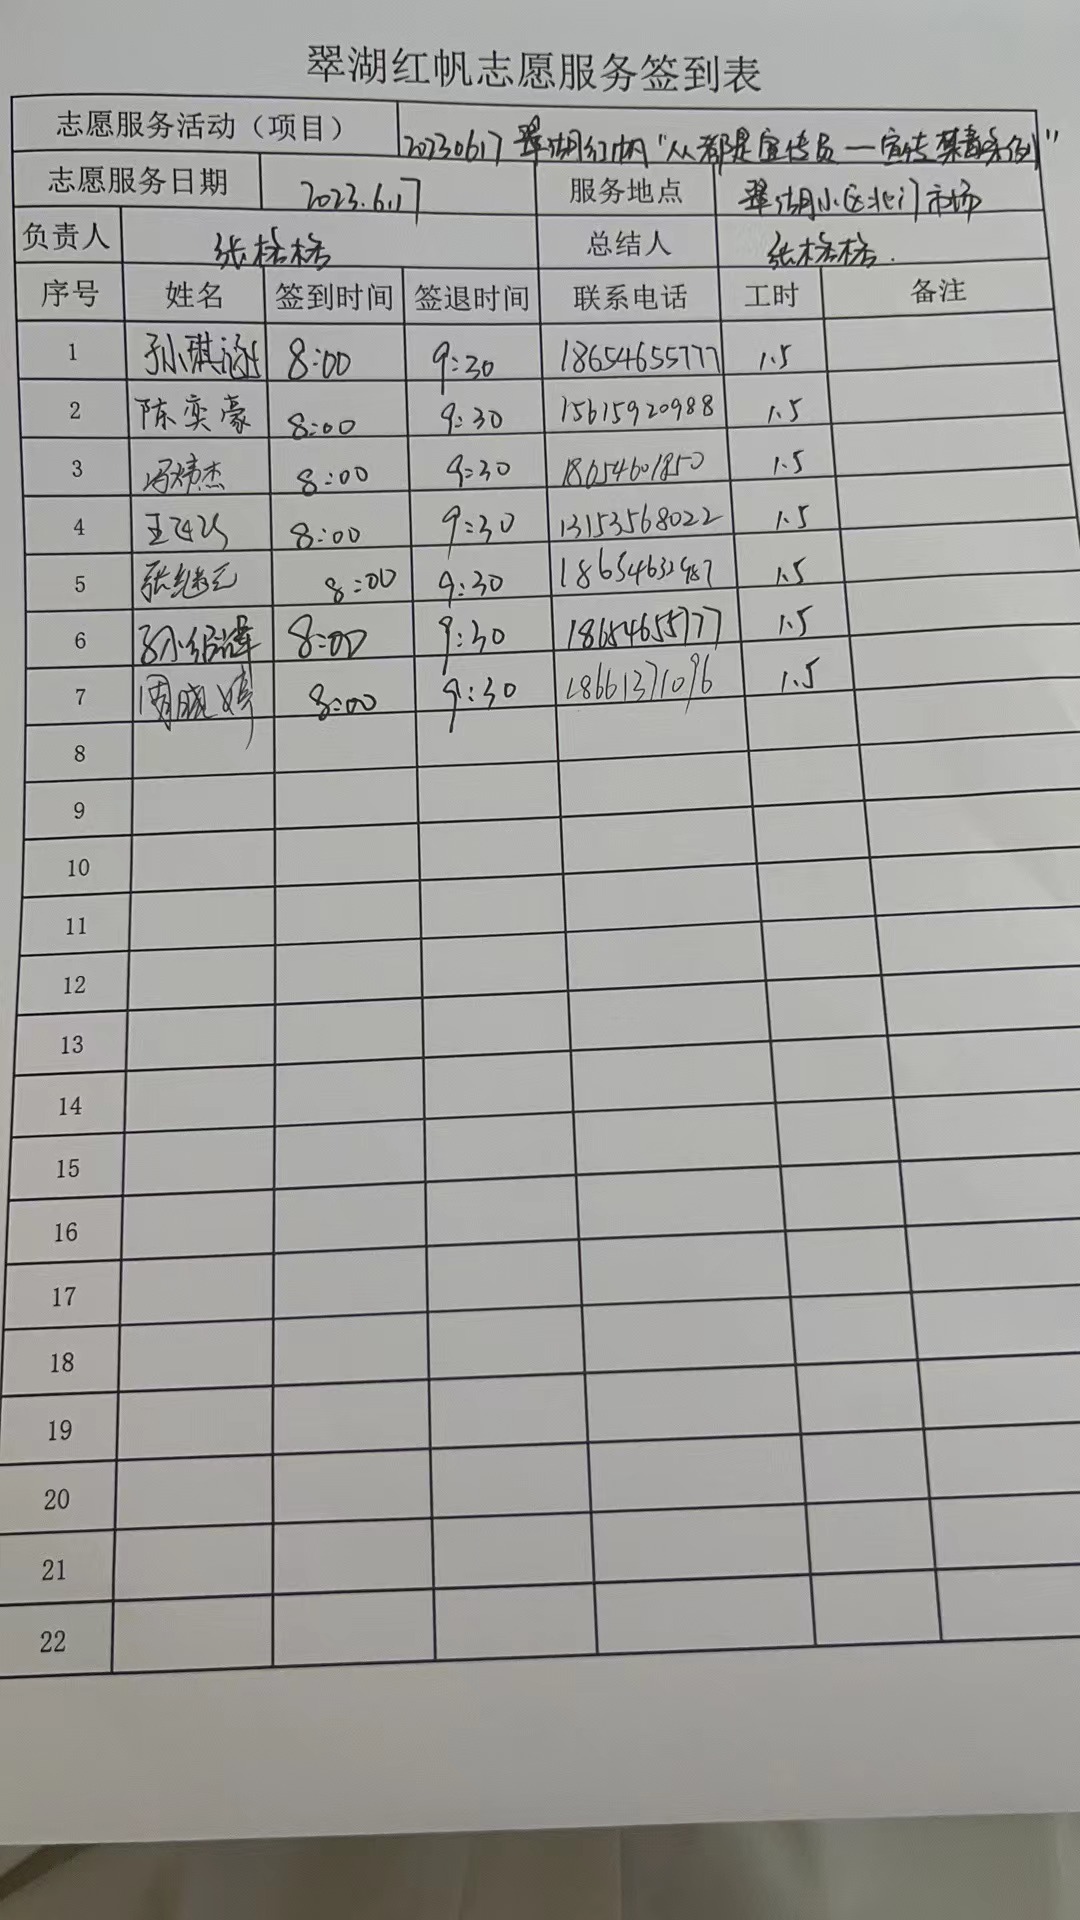 翠湖红帆志愿服务签到表
志愿服务活动（项目） 20230617 翠湖红帆“人都是宣传员—宣传禁毒条例”
志愿服务日期 2023.6.17 服务地点 翠湖小区北门市场
负责人 张格格 总结人 张格格.
序号 姓名 签到时间 签退时间 联系电话 工时 备注
1 孙琪涵 8:00 9:30 18654655777 1.5
2 陈奕豪 8:00 9:30 15615920988 1.5
3 冯炜杰 8:00 9:30 18654601850 1.5
4 王 8:00 9:30 13153568022 1.5
5 张继元 8:00 9:30 18654632987 1.5
6 孙绍譁 8:00 9:30 18654655777 1.5
7 周晓婷 8:00 9:30 18661371096 1.5
8
9
10
11
12
13
14
15
16
17
18
19
20
21
22